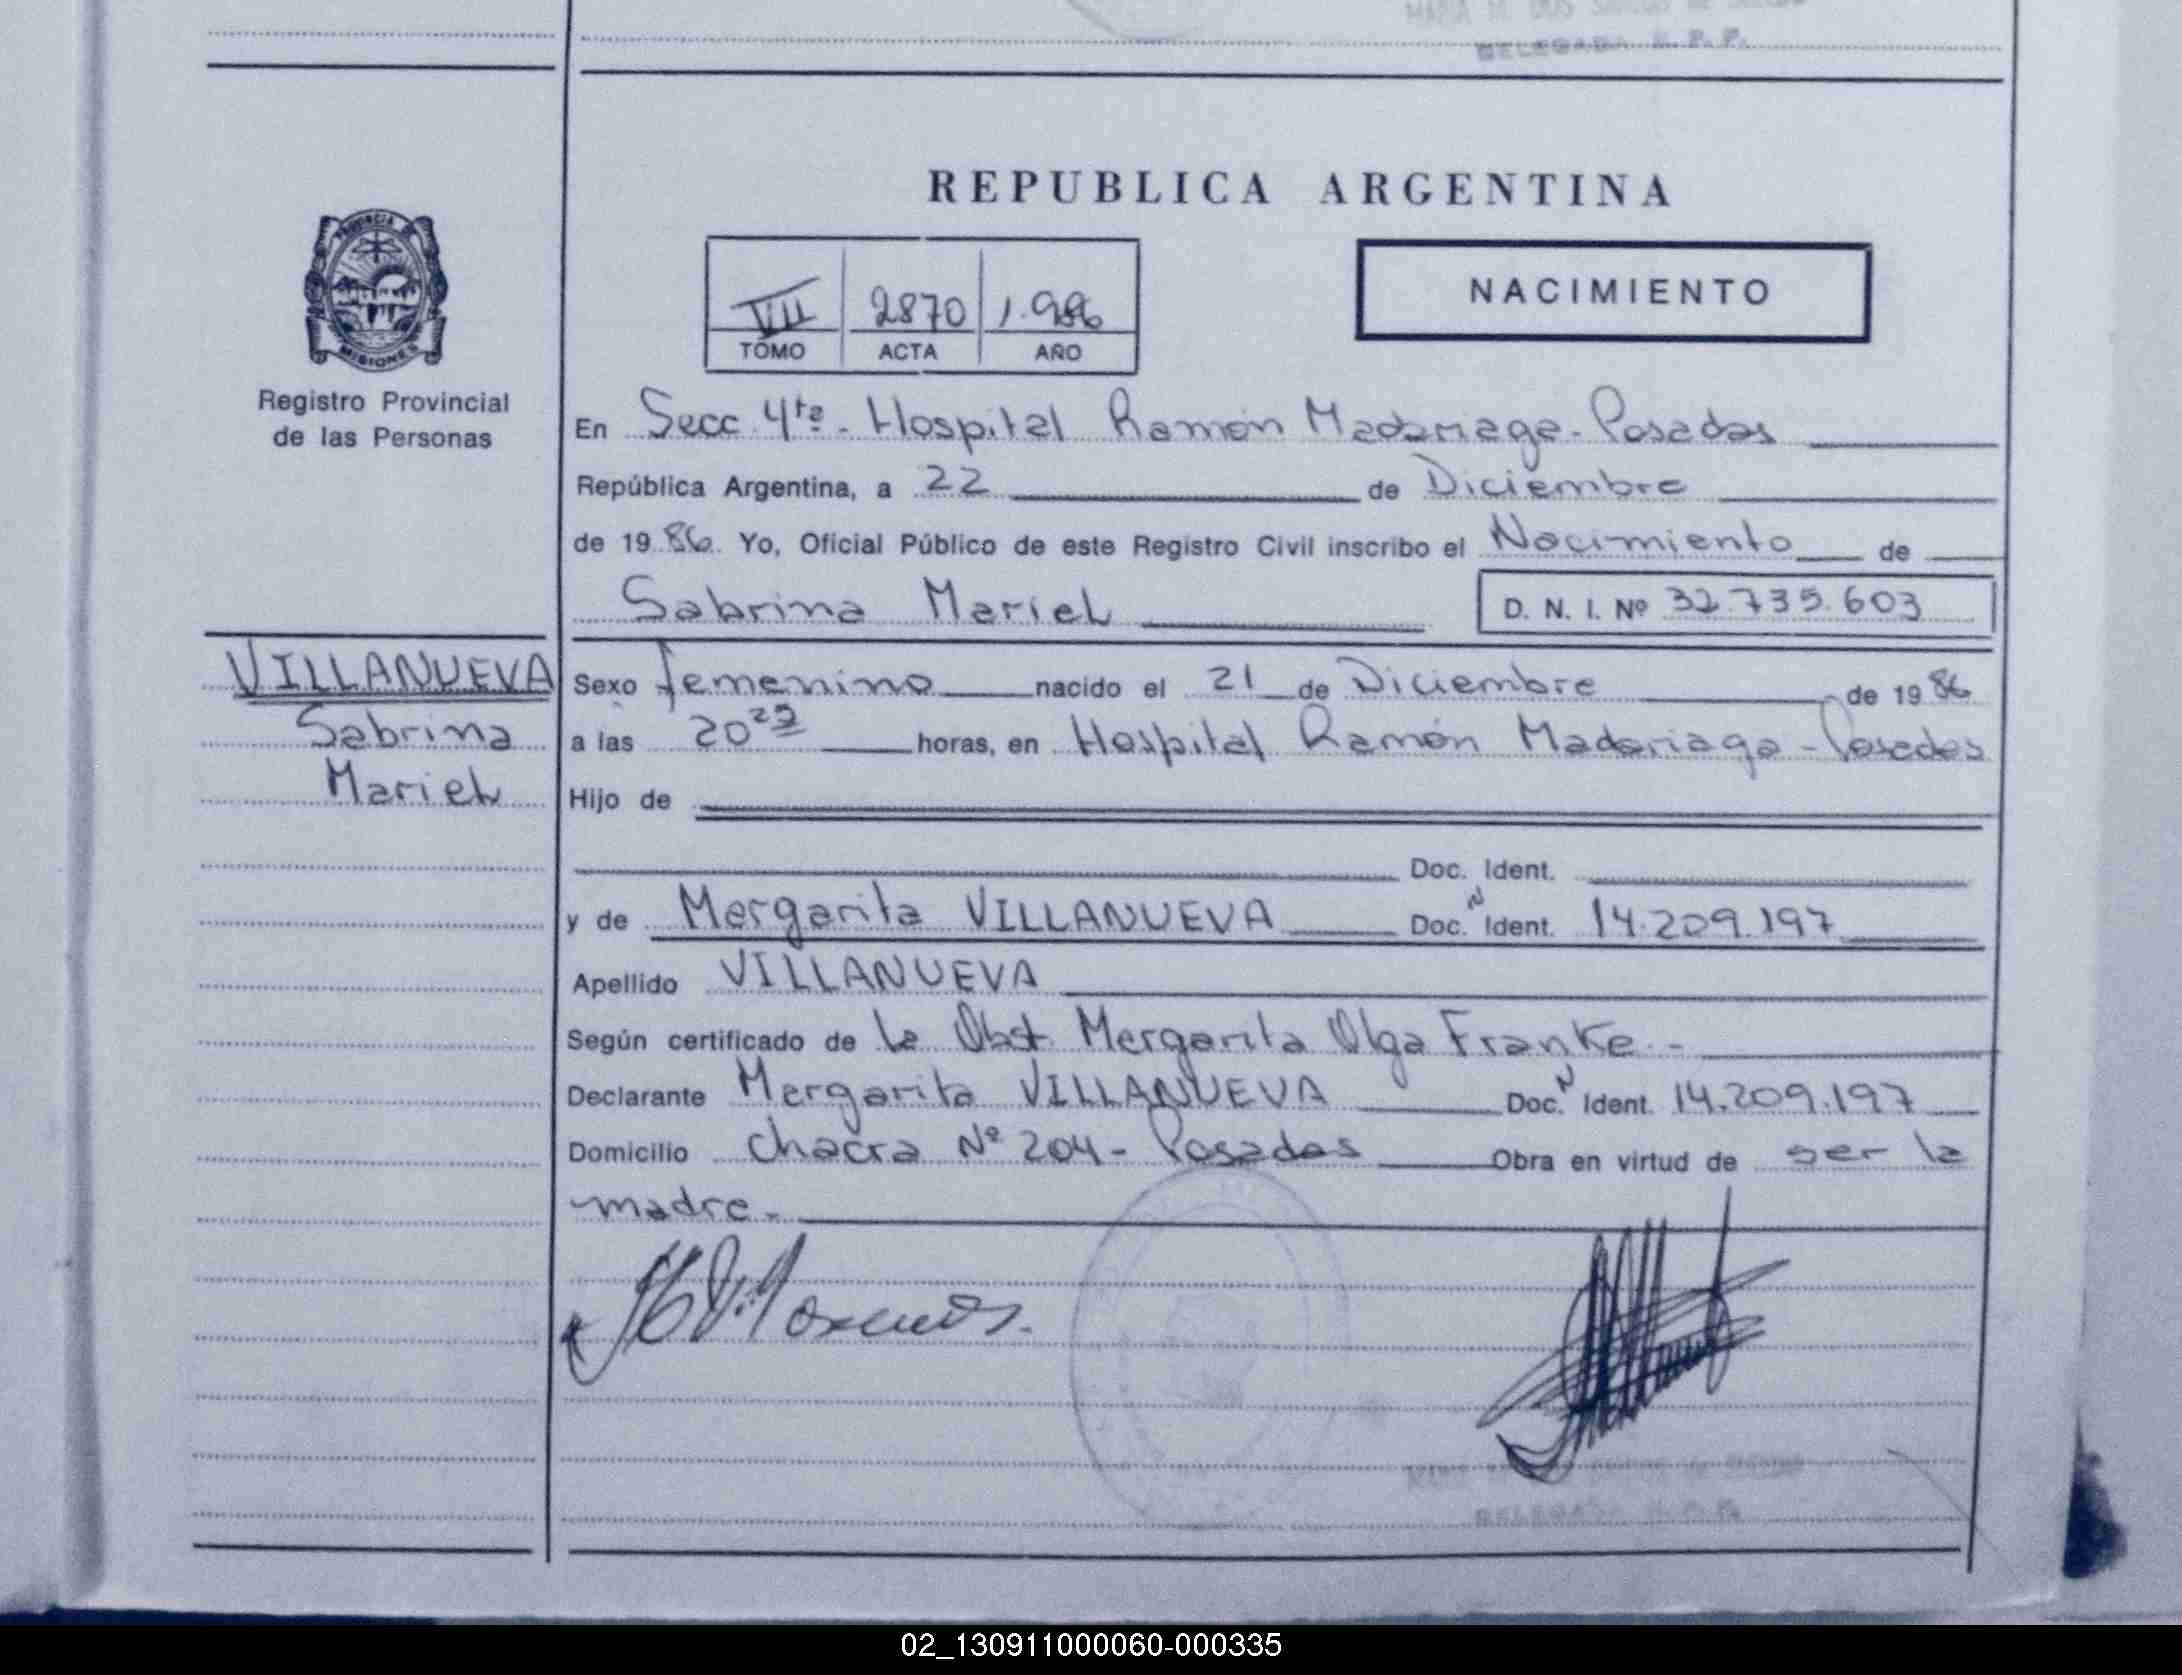 DELEGADA R. P. P.
REPUBLICA ARGENTINA
PROVINCIA DE
MISIONES
Registro Provincial
de las Personas
VII 2870 1.986
TOMO ACTA AÑO
NACIMIENTO
En Secc 4ta - Hospital Ramón Madariaga - Posadas
República Argentina, a 22 de Diciembre
de 19 86 Yo, Oficial Público de este Registro Civil inscribo el Nacimiento de
Sabrina Mariel D. N. I. Nº 32.735.603
VILLANUEVA
Sabrina
Mariel
Sexo femenino nacido el 21 de Diciembre de 19 86
a las 20 horas, en Hospital Ramón Madariaga - Posadas
Hijo de
Doc. Ident.
y de Margarita VILLANUEVA Doc. N Ident. 14.209.197
Apellido VILLANUEVA
Según certificado de la Obst Margarita Olga Franke -
Declarante Margarita VILLANUEVA Doc. N Ident. 14.209.197
Domicilio chacra Nº 204 - Posadas Obra en virtud de ser la
madre -
DELEGADA
02_130911000060-000335